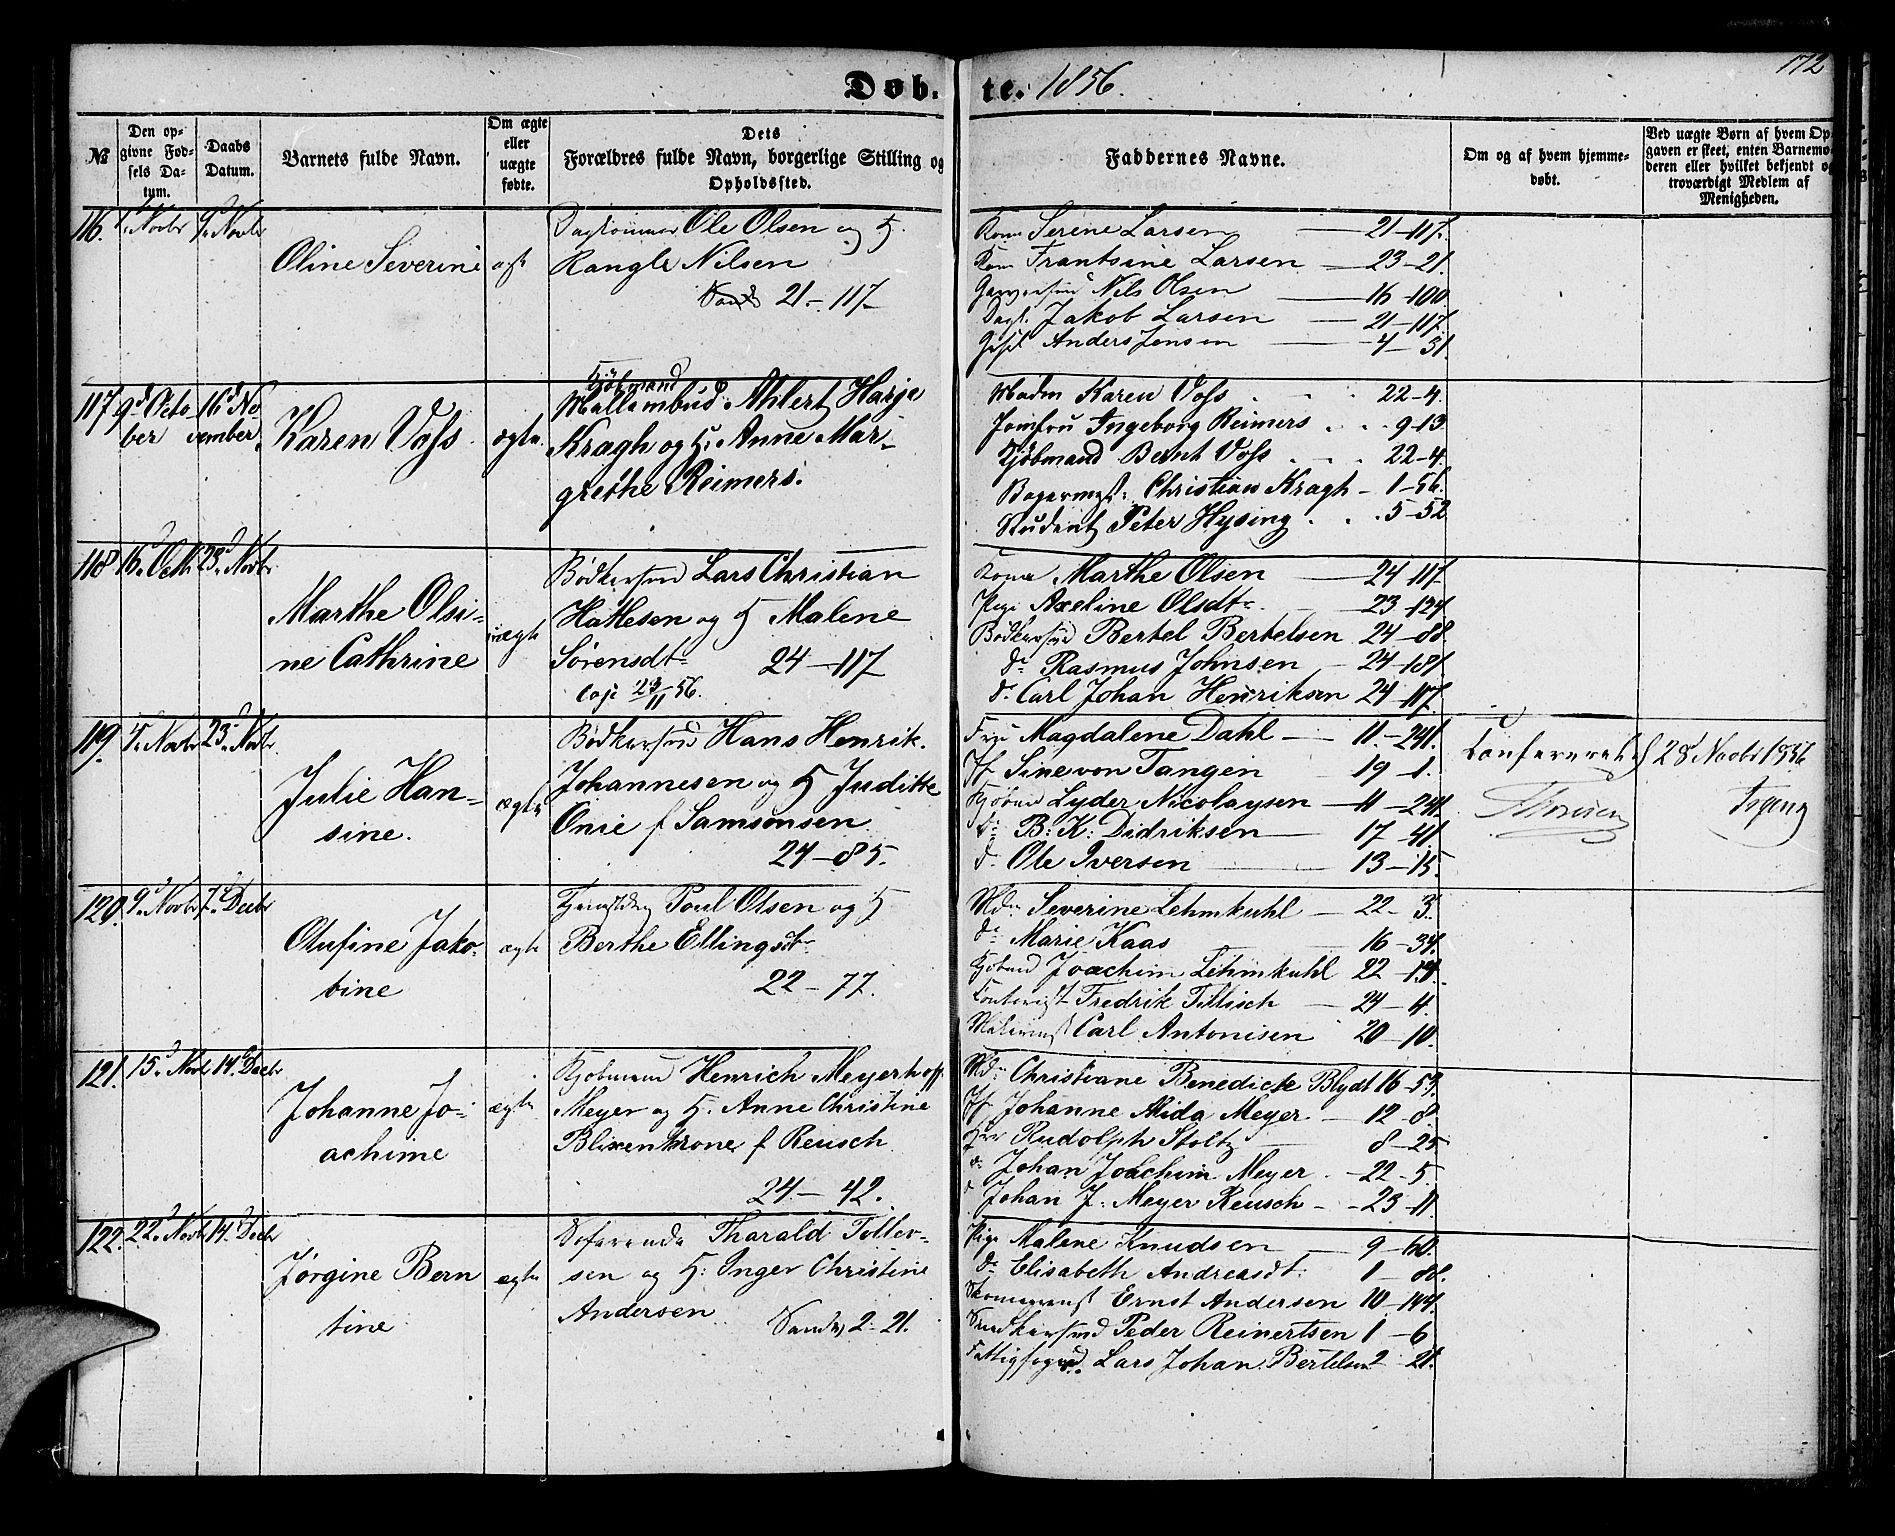 Døb- te. 1856.
172
No
Den op-
givne Fød-
sels Da-
tum.
Daabs
Datum.
Barnets fulde Navn.
Om ægte
eller
uægte
fødte.
Dets
Forældres fulde Navn, borgerlige Stilling og
Opholdssted.
Faddernes Navne.
Om og af hvem hjemme-
døbt.
Ved uægte Børn af hvem Op-
gaven er skeet, enten Barnemo-
deren eller hvilket bekjendt og
troværdigt Medlem af
Menigheden.
116. 1d Novbr 9d Novbr
Oline Severine
ægte
Ole Olsen og H.
Rangle Nilsen
21 - 117
Kone Serine Larsen 21-117.
Kone Frantsine Larsen 23-21.
Nils Olsen 16-100.
Jakob Larsen 21-117.
Anders Jensen 4-31.
117. 9d Octo- 16d No-
ber vember.
Karen Voss
ægte.
Kjøbmand
Ahlert Harje
Kragh og H. Anne Mar-
grethe Reimers.
Madm Karen Voss 22-4.
Jomfru Ingeborg Reimers 9-13
Kjøbmand Bernt Voss 22-4.
Bagermest: Christian Kragh - 1-56.
Student Peter Hysing 5-52
118 16d Octb 23d Novbr
Marthe Olsi-
ne Cathrine
uægte
Bødkersvd Lars Christian
Hattesen og H Malene
Sørensdtr 24-117
cop 23/11 56.
Kone Marthe Olsen 24-117.
Pige Axeline Olsdtr 23-124.
Bødkersvd Bertel Bertelsen 24-88.
do Rasmus Johnsen - 24-181.
do Carl Johan Henriksen 24-117.
119. 4d Novbr 23d Novbr
Julie Han-
sine.
ægte
Bødkersvd Hans Henrik.
Johannesen og H Juditte
Onie f Samsonsen
24-85.
Fru Magdalene Dahl 11.-241.
Jf Sine von Tangen 19-1.
Kjøbmd Lyder Nicolaysen 11-241.
do B: K: Didriksen 17-41.
do Ole Iversen 13-15.
28d Novbr 1856
120. 9d Novbr 7d Decbr
Olufine Jako-
bine
ægte
Poul Olsen og H
Berthe Ellingsdtr
22-77.
Md: Severine Lehmkuhl 22-3.
do Marie Kaas 16-34.
Kjøbmd Joachim Lehmkuhl 22-19.
Fredrik Tillisch 24-4.
Carl Antonisen 20-10.
121. 15d Novbr 14d Decbr
Johanne Jo-
achime
ægte
Kjøbmand Henrich Meyerhoff
Meyer og H. Anne Christine
Blixenkrone f Reusch
24-42.
Md: Christiane Benedicte Blydt 16-53.
Jf Johanne Alida Meyer - 12-8.
Hr Rudolph Stoltz 8-25
do Johan Joachim Meyer - 22-5.
d Johan J: Meyer Reusch - 23-11.
122. 22d Novbr 14d Decbr
Jørgine Bern
tine
ægte
Sofarende Tharald Tollev-
sen og H: Inger Christine
Andersen
2-21.
Pige Malene Knudsen 9-60.
do Elisabeth Andreasdt: 1-88.
Skomagermst Ernst Andersen 10-144.
Peder Reinertsen 1-6
Fattigfogd Lars Johan Bertelsen 2-21.